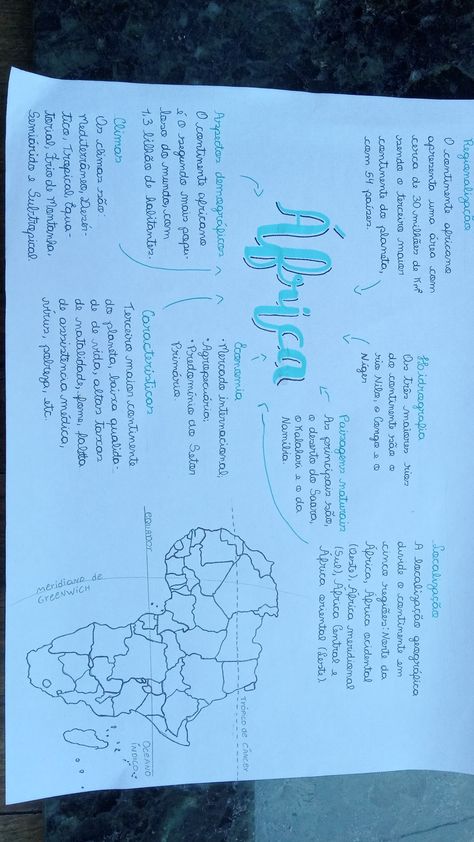 Regionalização
O continente africano
apresenta uma área com
cerca de 30 milhões de Km²
sendo o terceiro maior
continente do planeta,
com 54 países.
Hidrografia
Os três maiores rios
do continente são o
rio Nilo, o Congo e o
Níger
Localização
A localização geográfica
divide o continente em
cinco regiões: Norte da
África, África ocidental
(Oeste), África meridional
(Sul), África Central e
África oriental (Leste).
África
Paisagens naturais
As principais são,
o deserto do Saara,
o Kalahari e o da
Namíbia
Aspectos demográficos
O continente africano
é o segundo mais popu-
loso do mundo, com
1,3 bilhão de habitantes.
Economia
•Mercado internacional,
•Agropecuária;
•Predomínio do Setor
Primário
Climas
Os climas são
Mediterrâneo, Desér-
tico, Tropical, Equa-
torial, Frio de Montanha,
Semiárido e Subtropical
Características
Terceiro maior continente
do planeta, baixa qualida-
de de vida, altas taxas
de natalidades, fome, falta
de assistência médica,
vírus, pobreza, etc.
Trópico de Câncer
EQUADOR
meridiano de
GREENWICH
OCEANO
ÍNDICO